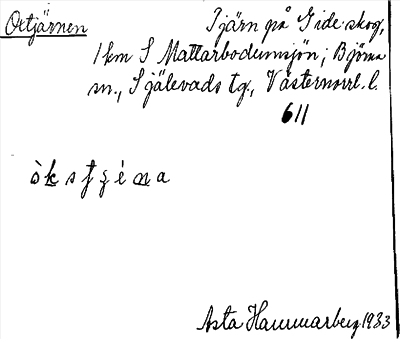 Oxtjärnen
Tjärn på Gide skog,
1 km S Mattarbodumsjön; Björna
sn., Själevads tg., Västernorrl. l.
611
Asta Hammarberg 1933